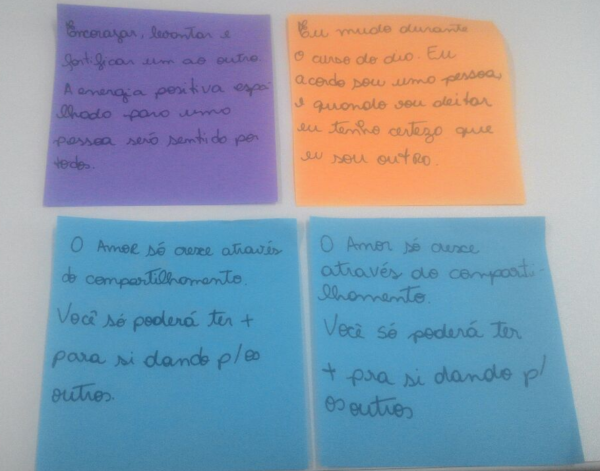 Encorajar, levantar e
fortificar um ao outro.
A energia positiva espa
lhada para uma
pessoa será sentida por
todos.
Eu mudo durante
o curso do dia. Eu
acordo sou uma pessoa,
e quando vou deitar
eu tenho certeza que
eu sou outro.
O Amor só cresce através
do compartilhamento.
Você só poderá ter +
para si dando p/ os
outros.
O Amor só cresce
através do comparti-
lhamento.
Você só poderá ter
+ pra si dando p/
os outros